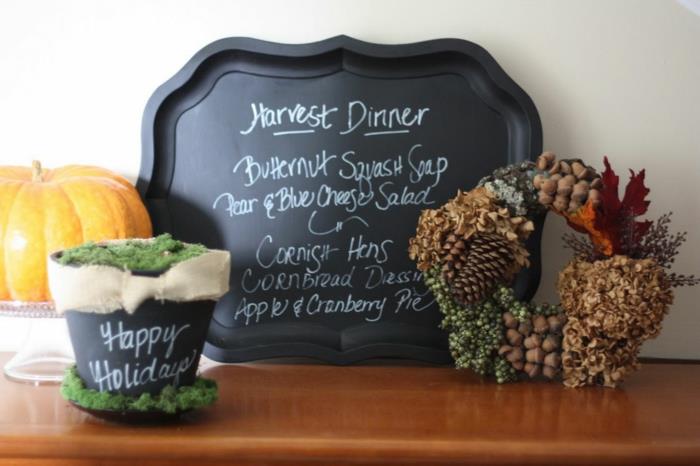 Harvest Dinner
Butternut Sqyash Soap
Pear & Blue Cheese Salad
Cornish Hens
CORNBread Dressin
Apple & Cranberry Pie
Happy
Holidays